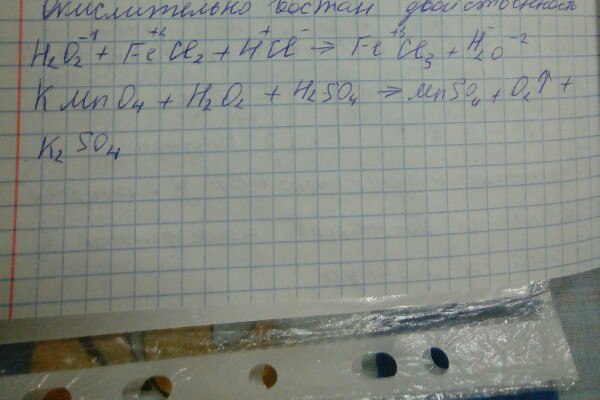 Окислительно востан двойственность
H₂O₂⁻¹ + Fe⁺²Cl₂ + H⁺Cl⁻ → Fe⁺³Cl₃ + H₂O⁻²
KMnO₄ + H₂O₂ + H₂SO₄ → MnSO₄ + O₂↑ +
K₂SO₄